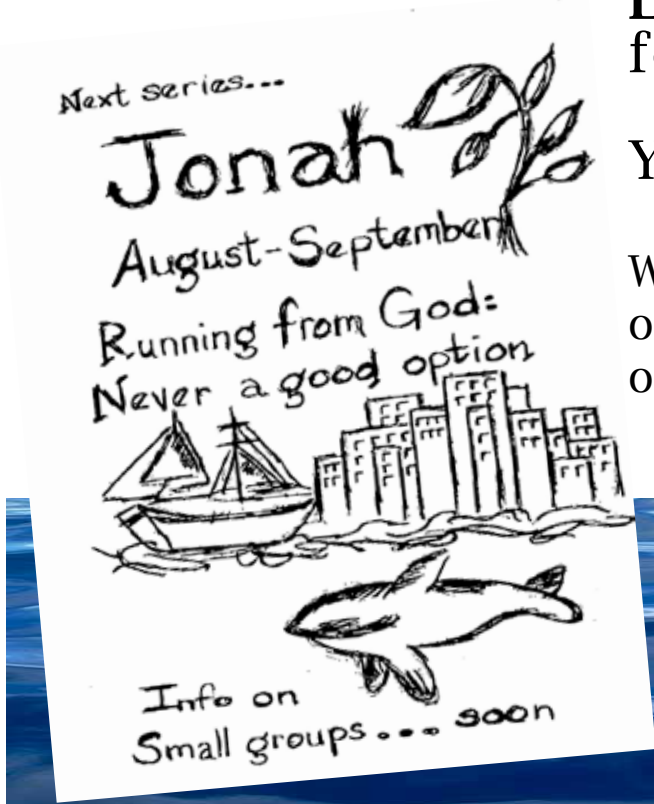 Next series...
Jonah
August-September
Running from God:
Never a good option
Info on
Small groups.... soon